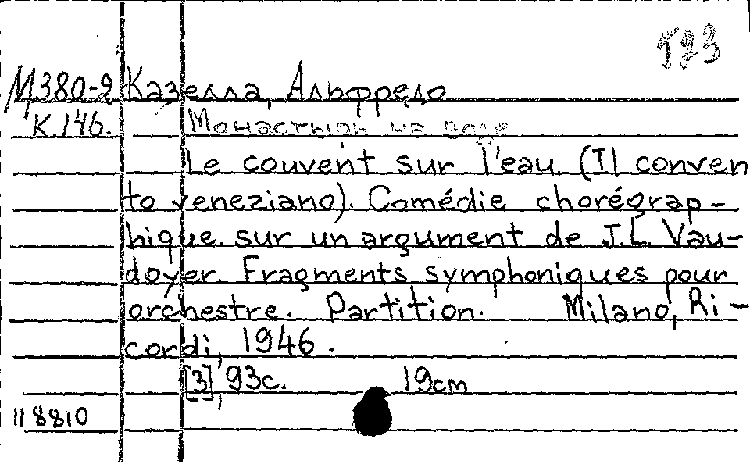 523
М380-2 Казелла, Альфредо
К 146. Монастырь на воде
Le couvent sur l'eau (Il conven
to veneziano). Comédie chorégrap-
hique sur un argument de J.L. Vau-
doyer. Fragments symphoniques pour
orchestre. Partition. Milano, Ri-
cordi, 1946.
[3], 93с. 19cm
118810